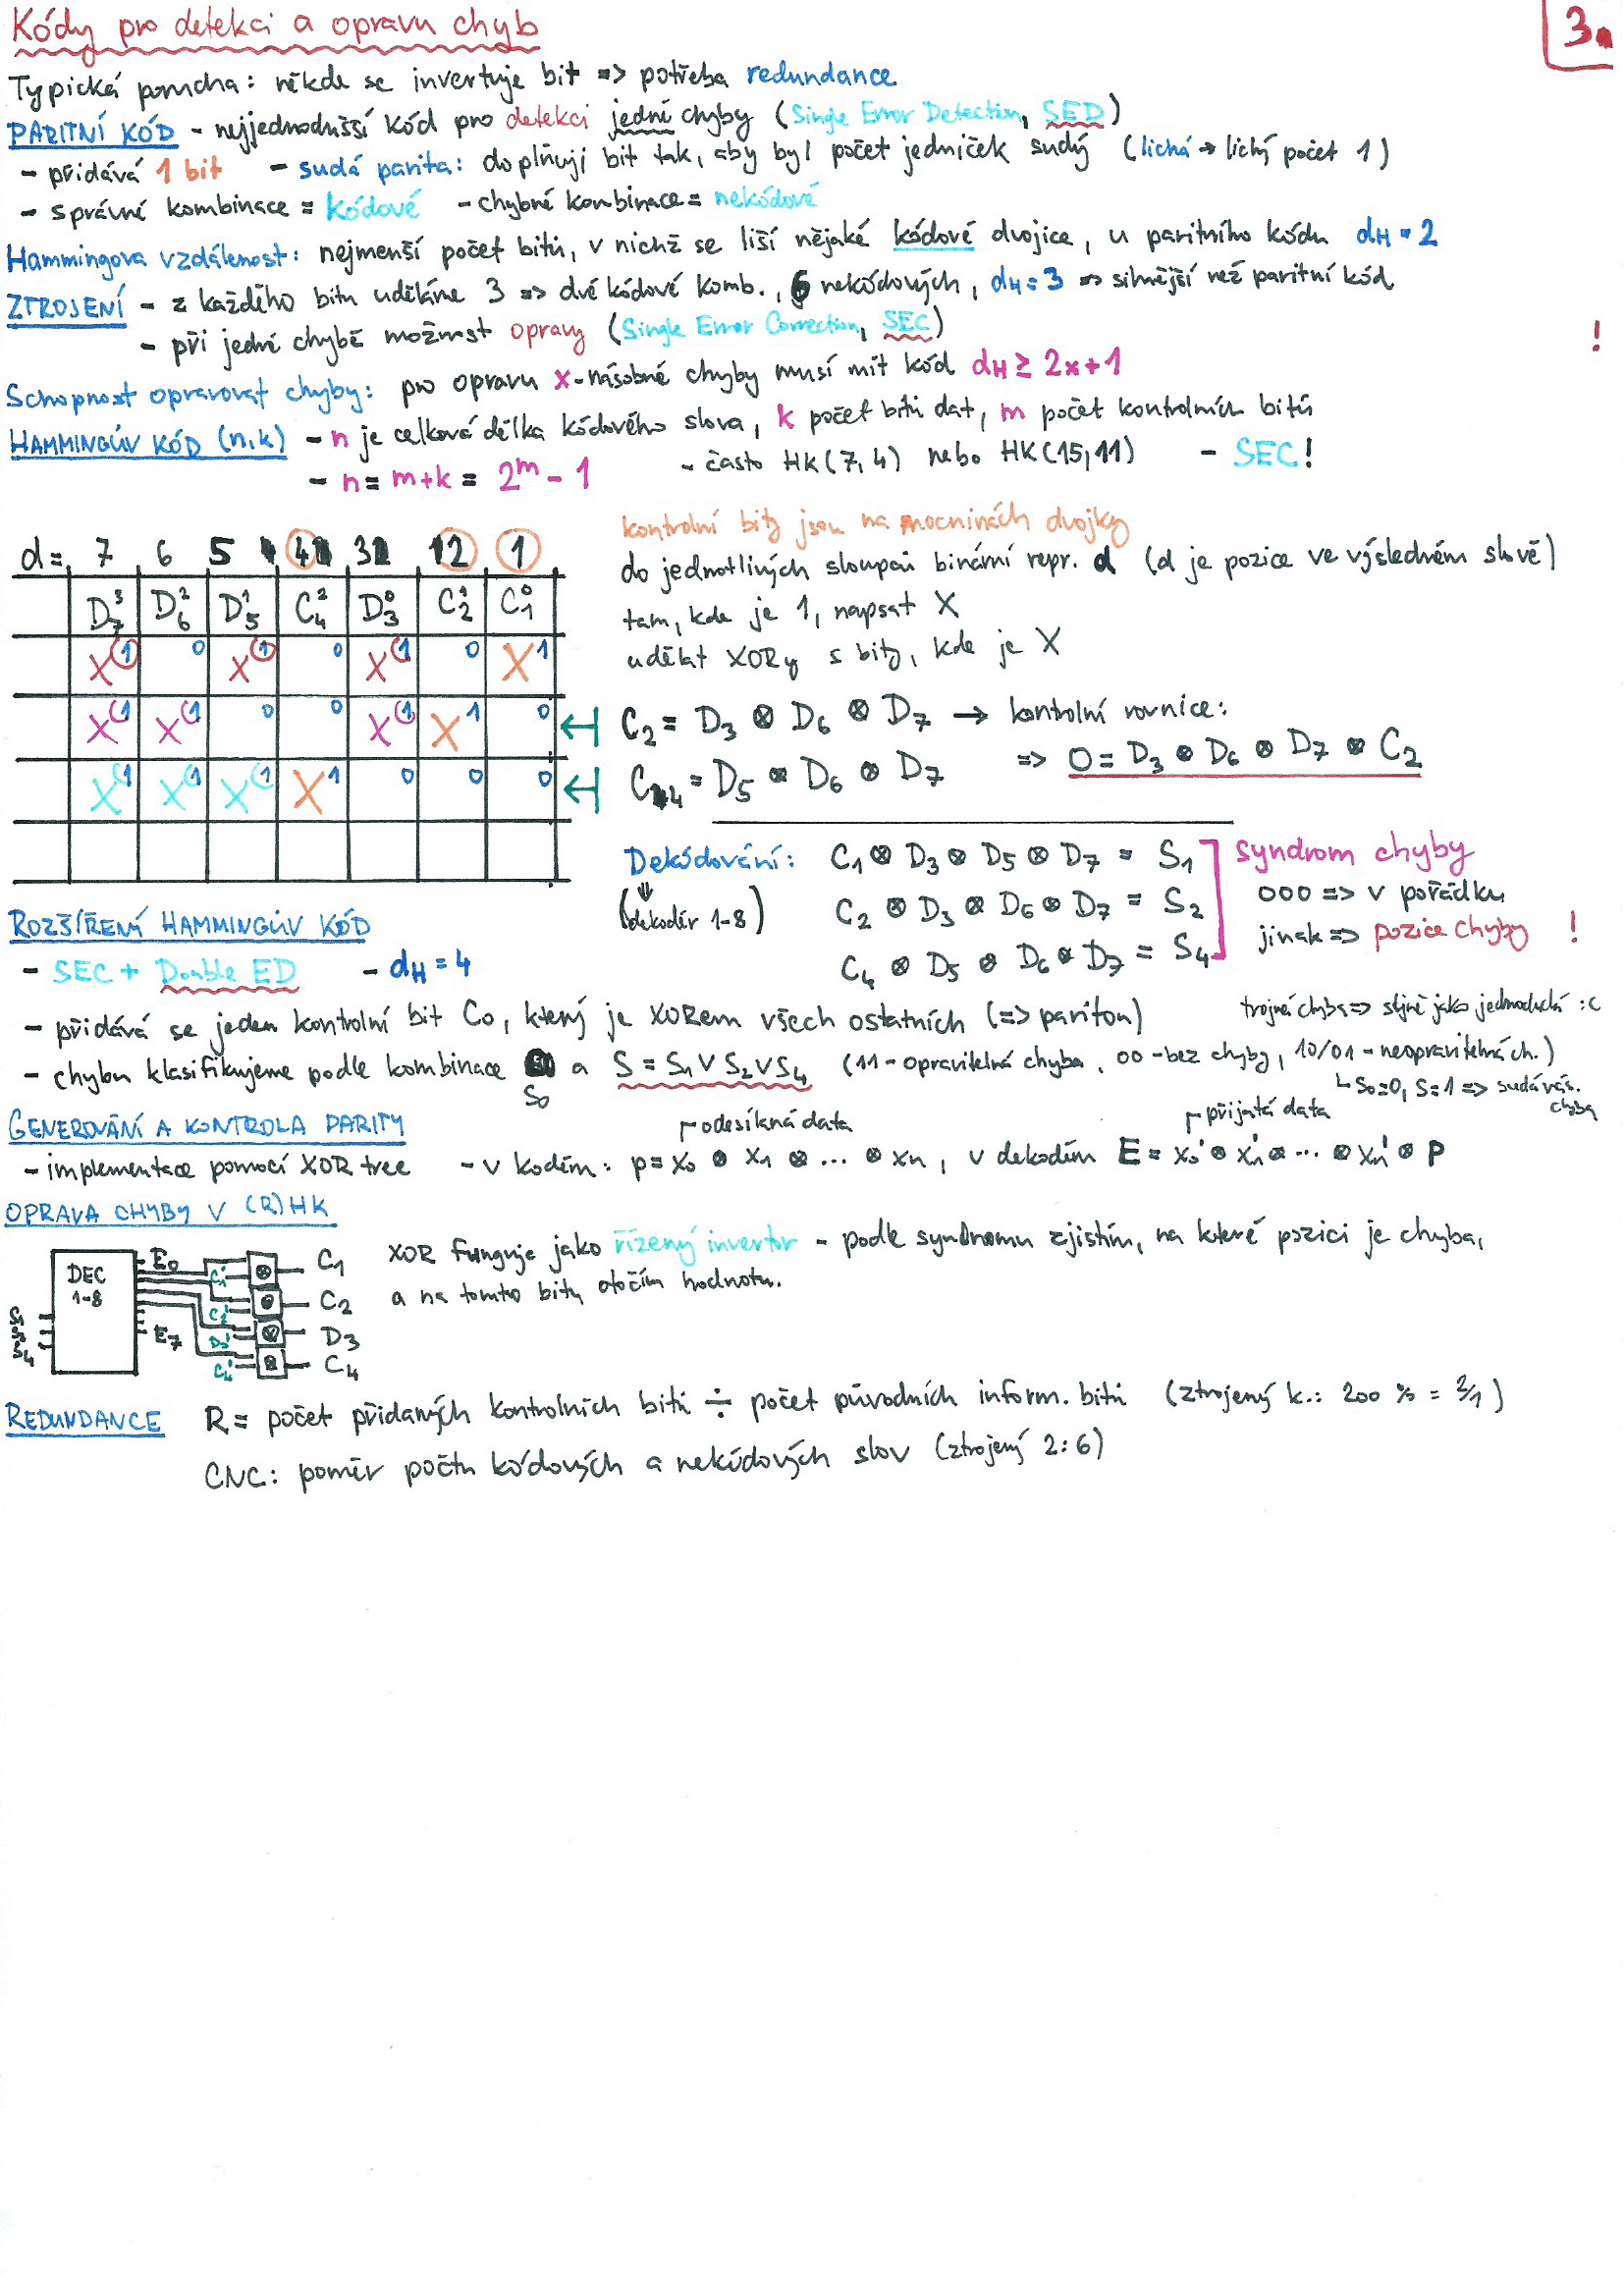 Kódy pro detekci a opravu chyb
3.
Typická porucha: někde se invertuje bit => potřeba redundance
PARITNÍ KÓD - nejjednodušší kód pro detekci jedné chyby (Single Error Detection, SED)
- přidává 1 bit - sudá parita: doplňuji bit tak, aby byl počet jedniček sudý (lichá → lichý počet 1)
- správné kombinace = kódové - chybné kombinace = nekódové
Hammingova vzdálenost: nejmenší počet bitů, v nichž se liší nějaké kódové dvojice, u paritního kódu dH = 2
ZTROJENÍ - z každého bitu uděláme 3 => dvě kódové komb., 6 nekódových, dH = 3 => silnější než paritní kód
- při jedné chybě možnost opravy (Single Error Correction, SEC)
!
Schopnost opravovat chyby: pro opravu x-násobné chyby musí mít kód dH ≥ 2x+1
HAMMINGŮV KÓD (n,k) - n je celková délka kódového slova, k počet bitů dat, m počet kontrolních bitů
- n = m+k = 2^m - 1 - často HK(7,4) nebo HK(15,11) - SEC!
d = 7 6 5 4 3 2 1
D₇³ D₆² D₅¹ C₄² D₃⁰ C₂¹ C₁⁰
X1 0 X1 0 X1 0 X1
X1 X1 0 0 X1 X1 0
X1 X1 X1 X1 0 0 0
kontrolní bity jsou na mocninách dvojky
do jednotlivých sloupců binární repr. d (d je pozice ve výsledném slově)
tam, kde je 1, napsat X
udělat XORy s bity, kde je X
C₂ = D₃ ⊗ D₆ ⊗ D₇ → kontrolní rovnice:
=> 0 = D₃ ⊗ D₆ ⊗ D₇ ⊗ C₂
C₄ = D₅ ⊗ D₆ ⊗ D₇
Dekódování: C₁ ⊗ D₃ ⊗ D₅ ⊗ D₇ = S₁
(dekodér 1-8) C₂ ⊗ D₃ ⊗ D₆ ⊗ D₇ = S₂
C₄ ⊗ D₅ ⊗ D₆ ⊗ D₇ = S₄
syndrom chyby
000 => v pořádku
jinak => pozice chyby !
ROZŠÍŘENÝ HAMMINGŮV KÓD
- SEC + Double ED - dH = 4
- přidává se jeden kontrolní bit C₀, který je XORem všech ostatních (=> paritou)
trojná chyba => stejné jako jednoduchá :c
- chybu klasifikujeme podle kombinace S₀ a S = S₁ ∨ S₂ ∨ S₄ (11 - opravitelná chyba, 00 - bez chyby, 10/01 - neopravitelná ch.)
↳ S₀=0, S=1 => sudá nás. chyba
GENEROVÁNÍ A KONTROLA PARITY
odesílaná data přijatá data
- implementace pomocí XOR tree - v kodéru: p = x₀ ⊗ x₁ ⊗ ... ⊗ xn, v dekodéru E = x₀' ⊗ x₁' ⊗ ... ⊗ xn' ⊗ p
OPRAVA CHYBY V (R)HK
DEC
1-8
S₁
S₂
S₄
E₀
E₇
C₁' C₁
C₂' C₂
D₃' D₃
C₄' C₄
XOR funguje jako řízený invertor - podle syndromu zjistím, na které pozici je chyba,
a na tomto bitu otočím hodnotu.
REDUNDANCE R = počet přidaných kontrolních bitů ÷ počet původních inform. bitů (ztrojený k.: 200 % = 2/1)
CNC: poměr počtu kódových a nekódových slov (ztrojený 2:6)